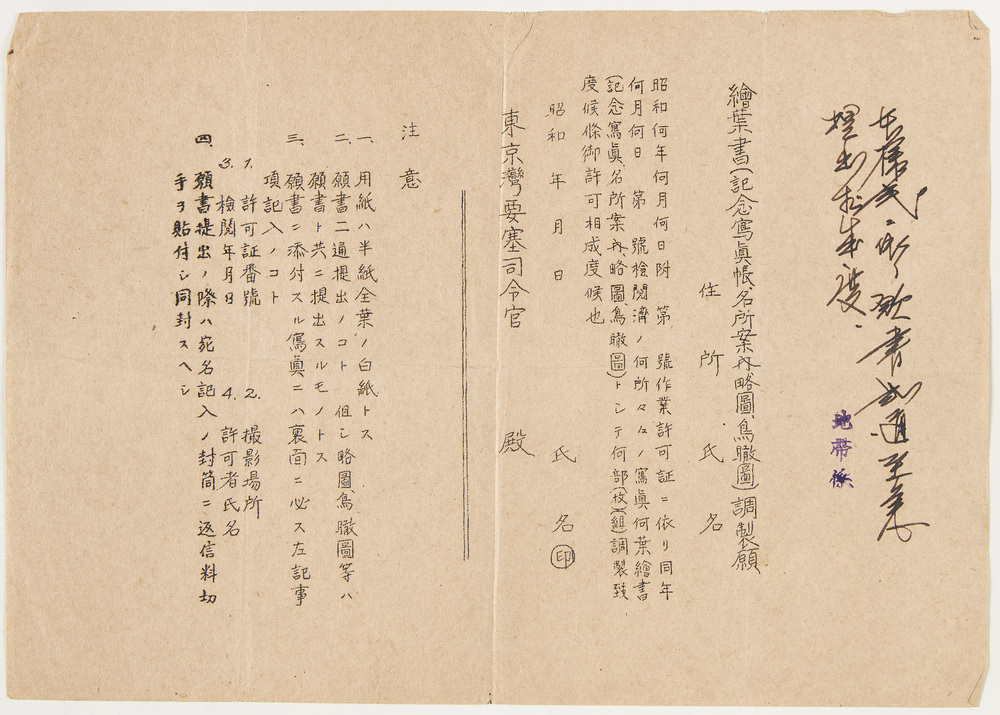 左様式ニ依リ願書弐通至急
提出相成度
地帯係
繪葉書(記念寫眞帳、名所案内略圖、鳥瞰圖)調製願
住所氏名
昭和何年何月何日附第　號作業許可証ニ依リ同年
何月何日　第　號檢閲濟ノ何所々々ノ寫眞何葉繪書
(記念寫眞、名所案内略圖、鳥瞰圖)トシテ何部(枚)(組)調製致
度候條御許可相成度候也
昭和　年　月　日
氏名㊞
東京灣要塞司令官　殿
注意
一、用紙ハ半紙全葉ノ白紙トス
二、願書二通提出ノコト　但シ略圖、鳥瞰圖等ハ
願書ト共ニ提出スルモノトス
三、願書ニ添付スル寫眞ニハ裏面ニ必ス左記事
項記入ノコト
1. 許可証番號　2. 撮影場所
3. 檢閲年月日　4. 許可者氏名
四、願書提出ノ際ハ宛名記入ノ封筒ニ返信料切
手ヲ貼付シ同封スヘシ